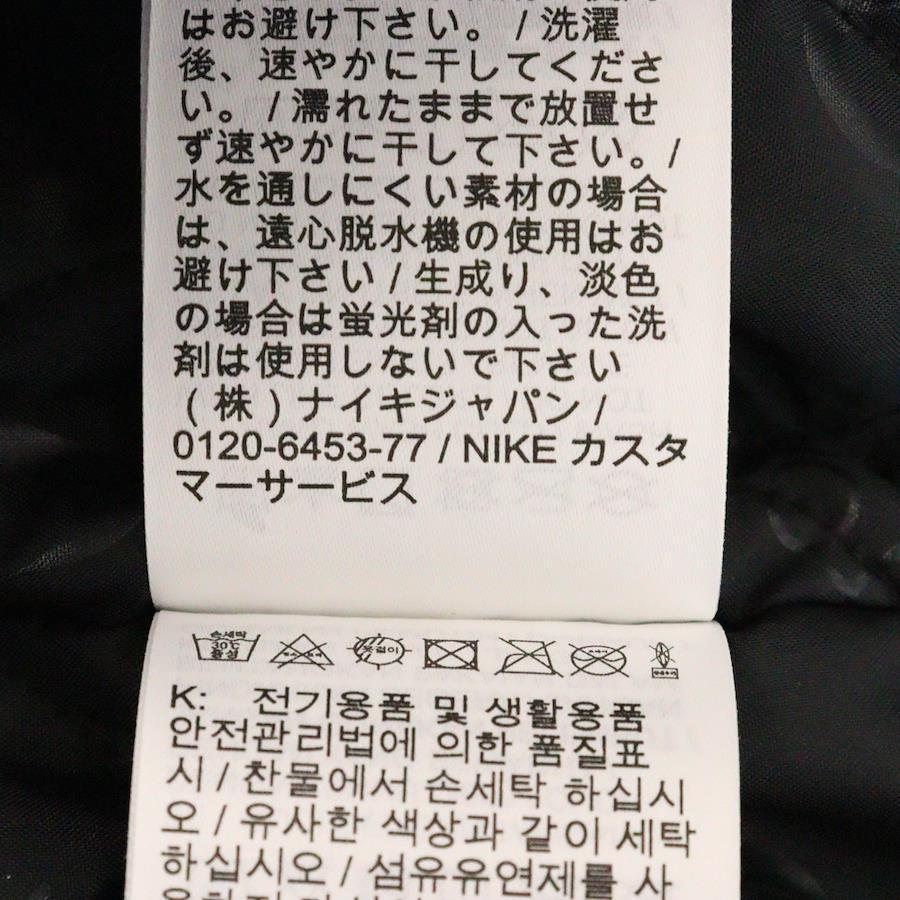 はお避け下さい。 / 洗濯
後、速やかに干してくださ
い。 / 濡れたままで放置せ
ず速やかに干して下さい。 /
水を通しにくい素材の場合
は、遠心脱水機の使用はお
避け下さい / 生成り、淡色
の場合は蛍光剤の入った洗
剤は使用しないで下さい
(株) ナイキジャパン /
0120-6453-77 / NIKE カスタ
マーサービス
손세탁
30℃
중성
옷걸이
K: 전기용품 및 생활용품
안전관리법에 의한 품질표
시 / 찬물에서 손세탁 하십시
오 / 유사한 색상과 같이 세탁
하십시오 / 섬유유연제를 사